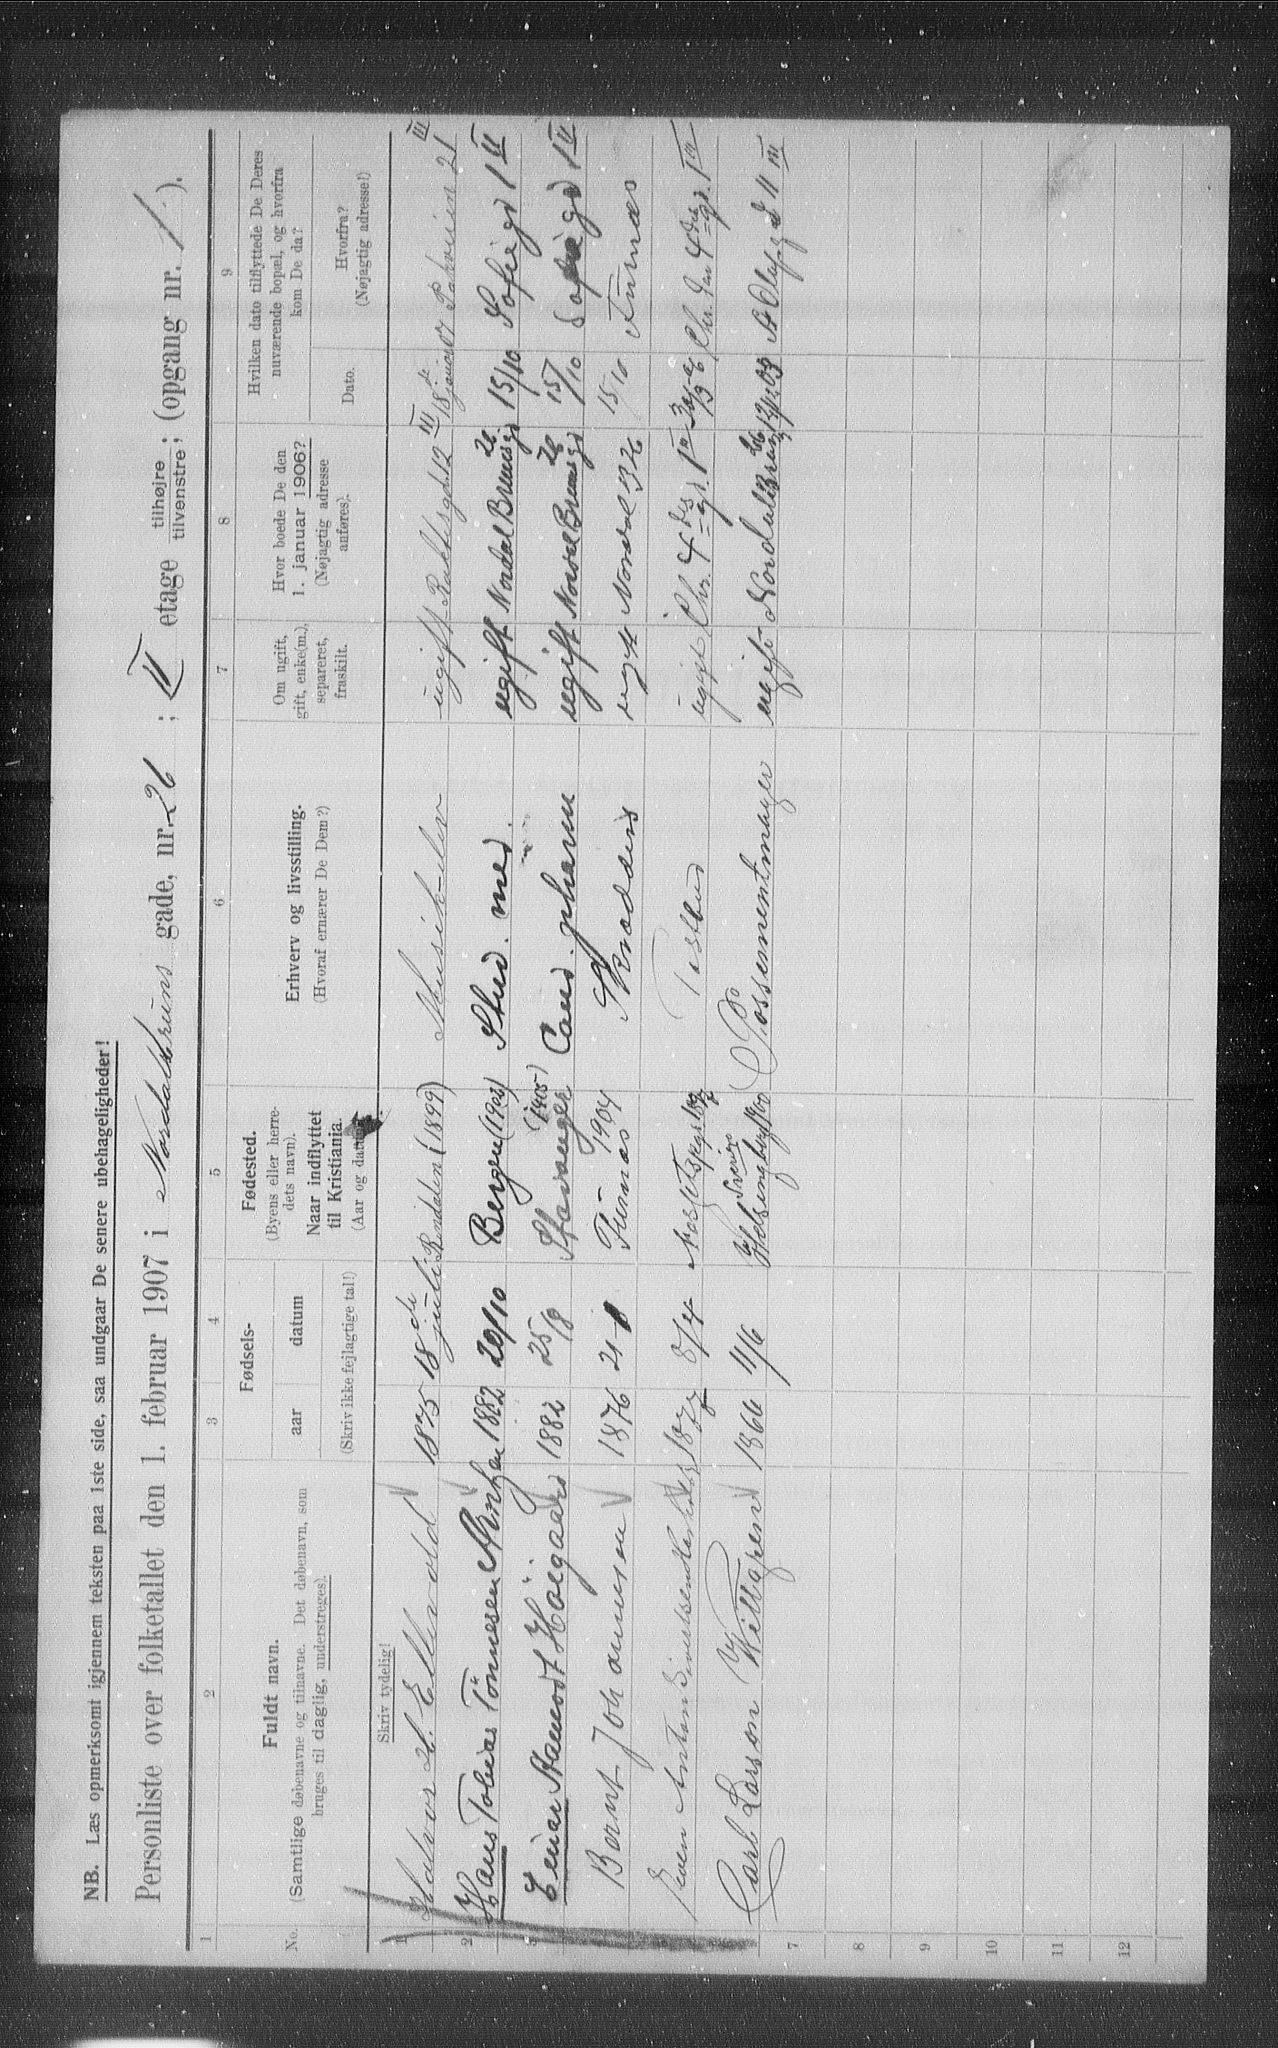 NB. Læs opmerksomt igjennem teksten paa 1ste side, saa undgaar De senere ubehageligheder!
Personliste over folketallet den 1. februar 1907 i Nordalbruns gade, nr. 26 ; II etage tilhøjre tilvenstre; (opgang nr. 1 ).
1 2 3 4 5 6 7 8 9
No.
Fuldt navn.
(Samtlige døbenavne og tilnavne. Det døbenavn, som
bruges til daglig, understreges).
Skriv tydelig!
Fødsels-
aar datum
(Skriv ikke fejlagtige tal!)
Fødested.
(Byens eller herre-
dets navn).
Naar indflyttet
til Kristiania.
(Aar og datum)
Erhverv og livsstilling.
(Hvoraf ernærer De Dem?)
Om ugift,
gift, enke(m.),
separeret,
fraskilt.
Hvor boede De den
1. januar 1906?
(Nøjagtig adresse
anføres).
Hvilken dato tilflyttede De Deres
nuværende bopæl, og hvorfra
kom De da?
Dato.
Hvorfra?
(Nøjagtig adresse!)
1 Halvor H. Ellevold 1875 18de juli Rindalen (1899) Musik-elev ugift 12 III 18 januar 07 21 III
2 Hans Tobias Tönnesen 1882 20/10 Bergen (1902) Stud. med. ugift Nordal Brunsgd 26 15/10 Sofiegd 1 II
3 Einar Hoigaard 1882 25/8 Stavanger (1905) Cand. pharm ugift Nordal Brunsgd 26 15/10 Sofiegd 1 II
4 Bernt Johannesen 1876 21 Furnæs 1904 Skrædder ugift Nordal B 26 15/10 Furnæs
5 Anton Sivertsen 187 8/4 ugift Chr. 4des gd. 1 III Chr. den 4des gd. 1 III
6 Carl Larson 1866 11/6 Helsingborg Sverige 1900 Possementmager ugift Nordal Bruns 26 03 St Olafsgd 11 III
7
8
9
10
11
12